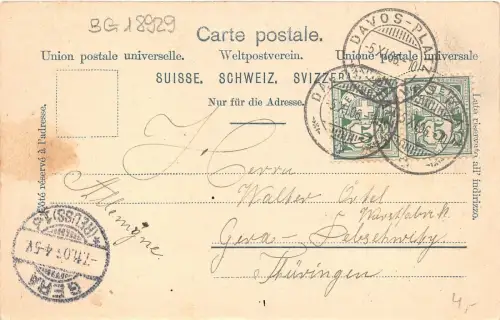 BG 18929
Carte postale.
Union postale universelle. Weltpostverein. Unione postale universale
SUISSE. SCHWEIZ. SVIZZERA
Nur für die Adresse.
Côté réservé à l'adresse.
Lato riservato all' indirizzo.
DAVOS-PLATZ
-5.XI.06.
Herrn
Walter Örtel
Wurstfabrik
Gera - Debschwitz
Thüringen
Allemagne
GERA
(REUSS)
-7.11.06. 4-5V.
4,-